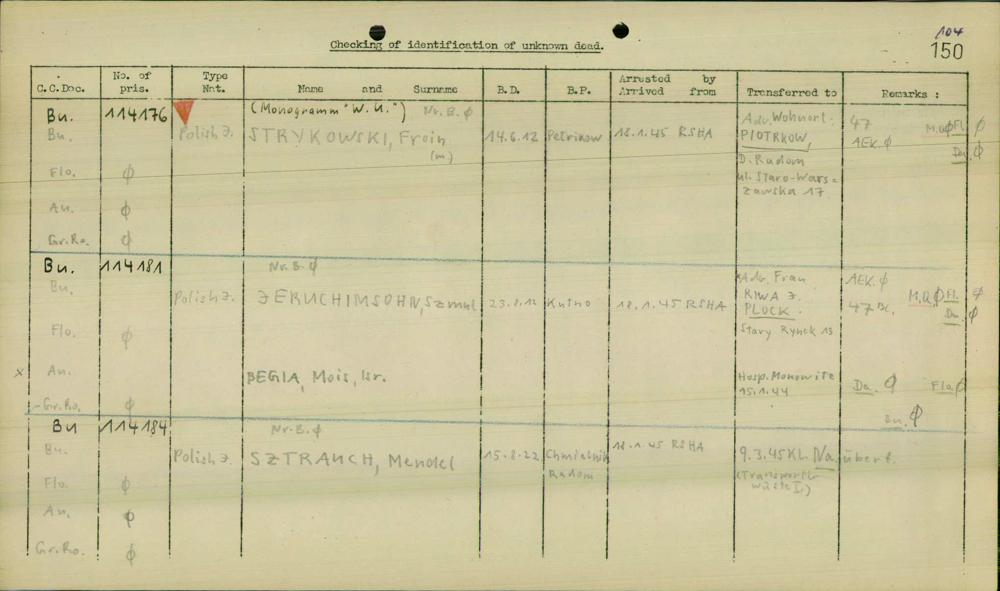 104
150
Checking of identification of unknown dead.
C.C.Doc. No. of pris. Type Nat. Name and Surname B.D. B.P. Arrested by Arrived from Transferred to Remarks :
Bu. 114176 (Monogramm "W.U.") Nr.B.ϕ Adr. Wohnort: 47
Bu. Polish J. STRYKOWSKI, Froin 14.6.12 Petrikow 18.1.45 RSHA PIOTRKOW, AEK.ϕ M.Qϕ Fl. ϕ
(m) Da. ϕ
D. Radom
Flo. ϕ ul. Staro-Wars=
zawska 17
Au. ϕ
Gr.Ro. ϕ
Bu. 114181 Nr.B.ϕ Adr. Frau AEK.ϕ
Bu. Polish J. JERUCHIMSOHN, Szmul 23.8.12 Kutno 18.1.45 RSHA RIWA J. M.Q ϕ Fl. ϕ
PLOCK. 47 Bl. Da. ϕ
Flo. ϕ Stary Rynek 13
x Au. BEGIA, Mois, Isr. Hosp. Monowitz Da. ϕ Fla ϕ
15.1.44
-Gr.Ro. ϕ Bu. ϕ
Bu 114184 Nr.B.ϕ
Bu. Polish J. SZTRAUCH, Mendel 15.8.22 Chmielnik 18.1.45 RSHA 9.3.45 KL. Na. überf.
Radom
Flo. ϕ
Au. ϕ
Gr.Ro. ϕ